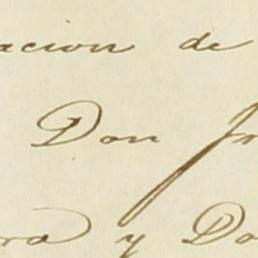 acion de
Don Jr
ra y Do